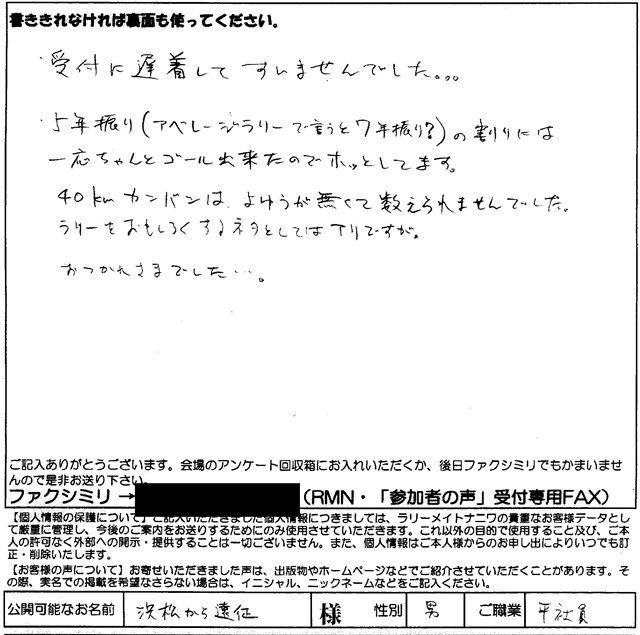 書ききれなければ裏面も使ってください。
・受付に遅着してすいませんでした。。。
・5年振り(アベレージラリーで言うと7年振り?)の割りには
一応ちゃんとゴール出来たのでホッとしてます。
40kmカンバンは、よゆうが無くて数えられませんでした。
ラリーをおもしろくするネタとしてはアリですが。
おつかれさまでした…。
ご記入ありがとうございます。会場のアンケート回収箱にお入れいただくか、後日ファクシミリでもかまいませ
んので是非お送り下さい。
ファクシミリ→ (RMN・「参加者の声」受付専用FAX)
【個人情報の保護について】ご記入いただきました個人情報につきましては、ラリーメイトナニワの貴重なお客様データとし
て厳重に管理し、今後のご案内をお送りするためにのみ使用させていただきます。これ以外の目的で使用すること及び、ご本
人の許可なく外部への開示・提供することは一切ございません。また、個人情報はご本人様からのお申し出によりいつでも訂
正・削除いたします。
【お客様の声について】お寄せいただきました声は、出版物やホームページなどでご紹介させていただくことがあります。そ
の際、実名での掲載を希望なさらない場合は、イニシャル、ニックネームなどをご記入ください。
公開可能なお名前 浜松から遠征 様 性別 男 ご職業 平社員